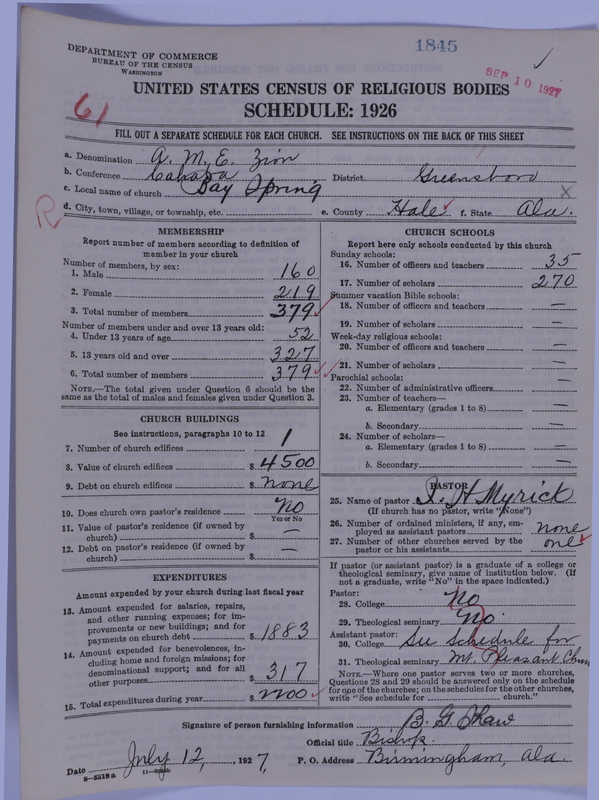 1845
DEPARTMENT OF COMMERCE
BUREAU OF THE CENSUS
WASHINGTON
SEP 10 1927
UNITED STATES CENSUS OF RELIGIOUS BODIES
SCHEDULE: 1926
61
FILL OUT A SEPARATE SCHEDULE FOR EACH CHURCH. SEE INSTRUCTIONS ON THE BACK OF THIS SHEET
a. Denomination A. M. E. Zion
b. Conference Cahaba District Greensboro
c. Local name of church Bay Spring X
R
d. City, town, village, or township, etc. e. County Hale f. State Ala.
MEMBERSHIP
Report number of members according to definition of
member in your church
Number of members, by sex:
1. Male 160
2. Female 219
3. Total number of members 379
Number of members under and over 13 years old:
4. Under 13 years of age 52
5. 13 years old and over 327
6. Total number of members 379
NOTE.—The total given under Question 6 should be the
same as the total of males and females given under Question 3.
CHURCH BUILDINGS
See instructions, paragraphs 10 to 12
7. Number of church edifices 1
8. Value of church edifices $ 4500
9. Debt on church edifices $ none
10. Does church own pastor's residence No
Yes or No
11. Value of pastor's residence (if owned by
church) $ —
12. Debt on pastor's residence (if owned by
church) $ —
EXPENDITURES
Amount expended by your church during last fiscal year
13. Amount expended for salaries, repairs,
and other running expenses; for im-
provements or new buildings; and for
payments on church debt $ 1883
14. Amount expended for benevolences, in-
cluding home and foreign missions; for
denominational support; and for all
other purposes $ 317
15. Total expenditures during year $ 2200
CHURCH SCHOOLS
Report here only schools conducted by this church
Sunday schools:
16. Number of officers and teachers 35
17. Number of scholars 270
Summer vacation Bible schools:
18. Number of officers and teachers —
19. Number of scholars —
Week-day religious schools:
20. Number of officers and teachers —
21. Number of scholars —
Parochial schools:
22. Number of administrative officers —
23. Number of teachers—
a. Elementary (grades 1 to 8) —
b. Secondary —
24. Number of scholars—
a. Elementary (grades 1 to 8) —
b. Secondary —
PASTOR
25. Name of pastor H Myrick
(If church has no pastor, write "None")
26. Number of ordained ministers, if any, em-
ployed as assistant pastors none
27. Number of other churches served by the
pastor or his assistants one
If pastor (or assistant pastor) is a graduate of a college or
theological seminary, give name of institution below. (If
not a graduate, write "No" in the space indicated.)
Pastor:
28. College No
29. Theological seminary No
Assistant pastor:
30. College See Schedule for
31. Theological seminary Mt. Pleasant
NOTE.—Where one pastor serves two or more churches,
Questions 28 and 29 should be answered only on the schedule
for one of the churches; on the schedules for the other churches,
write "See schedule for church."
Signature of person furnishing information B. G. Shaw
Official title Bishop
Date July 12, 1927, P. O. Address Birmingham, Ala.